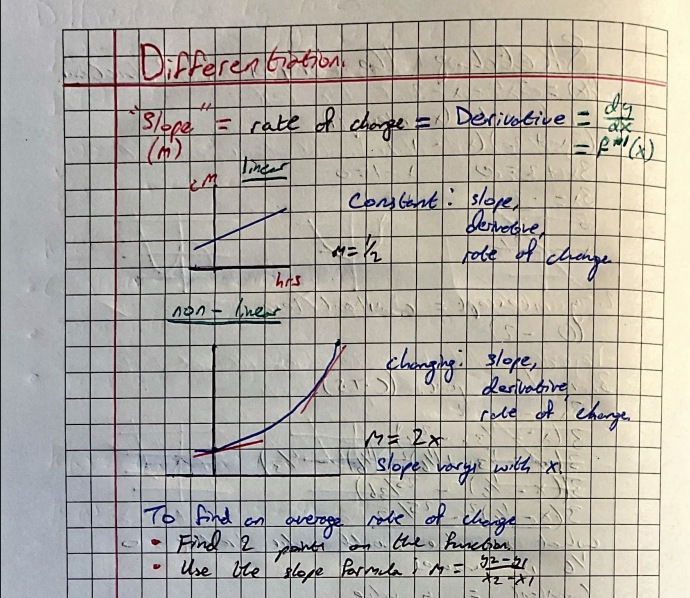 Differentiation.
"Slope" = rate of change = Derivative = dy/dx
(m) = f'(x)
linear
cm
Constant: slope,
derivative,
m = 1/2 rate of change
hrs
non-linear
changing: slope,
derivative,
rate of change.
m = 2x
Slope varys with x.
To find an average rate of change
• Find 2 points on the function.
• Use the slope formula: m = y2-y1/x2-x1